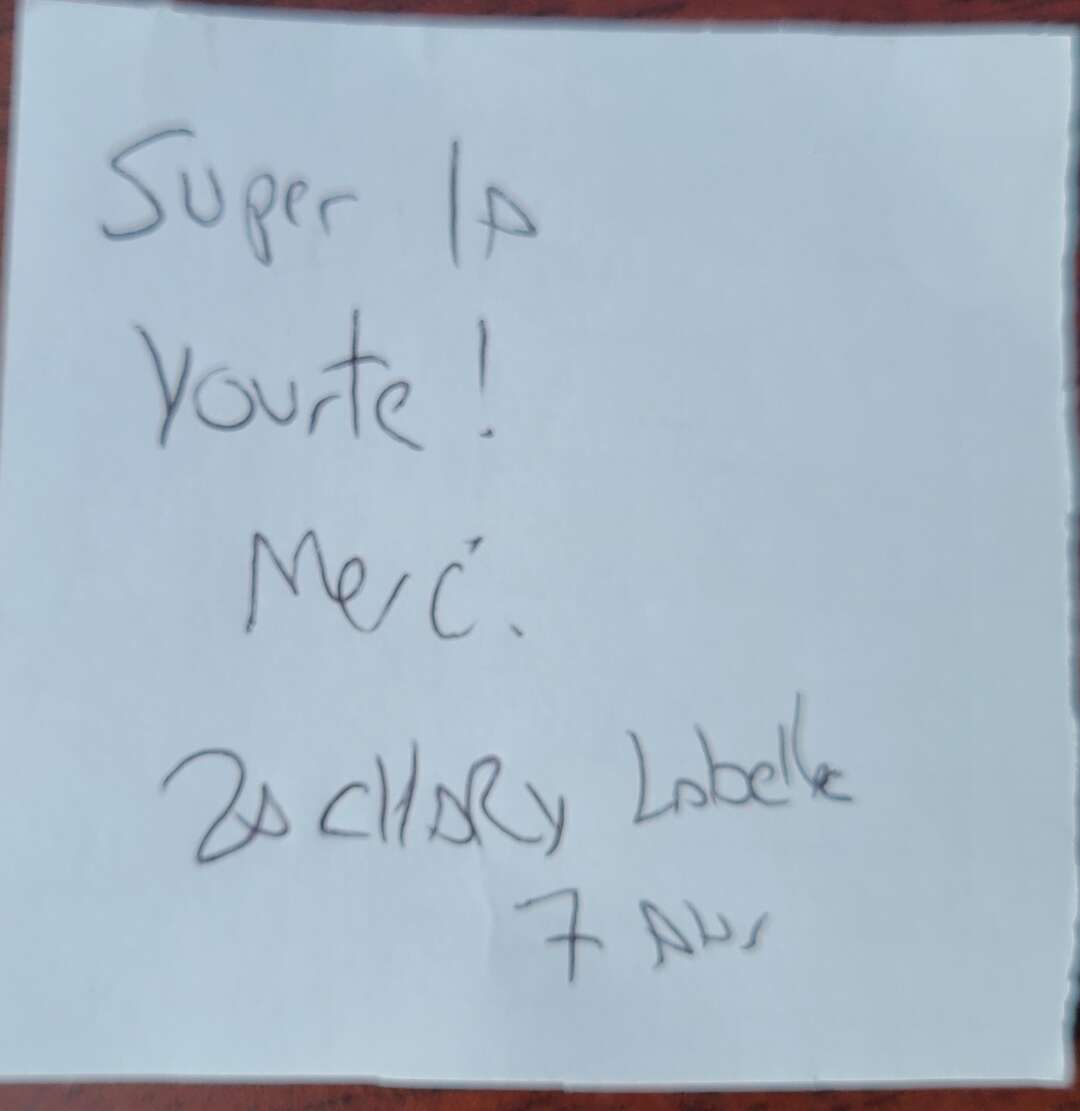 Super la
Yourte !
Merci.
ZACHARY Labelle
7 ANS